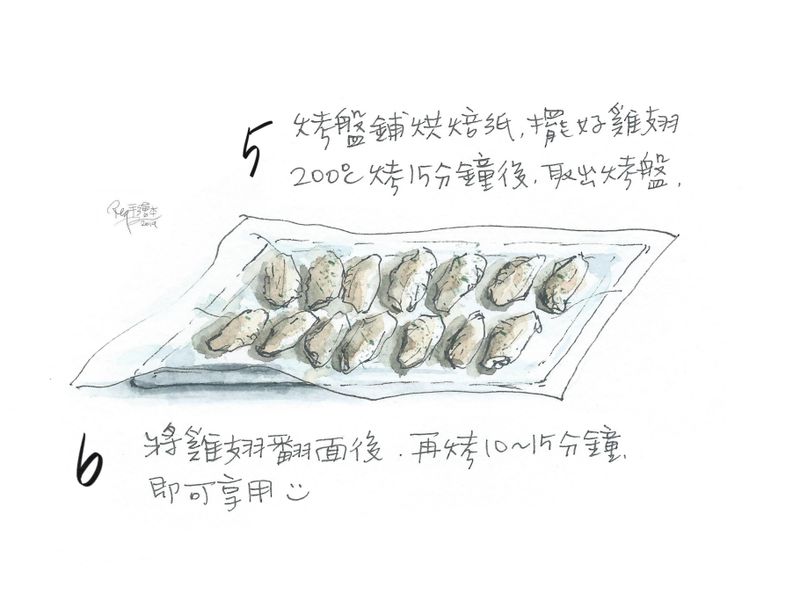 5 烤盤鋪烘焙紙,擺好雞翅
200℃烤15分鐘後,取出烤盤.
Reg手繪本
2019
6 將雞翅翻面後.再烤10~15分鐘,
即可享用